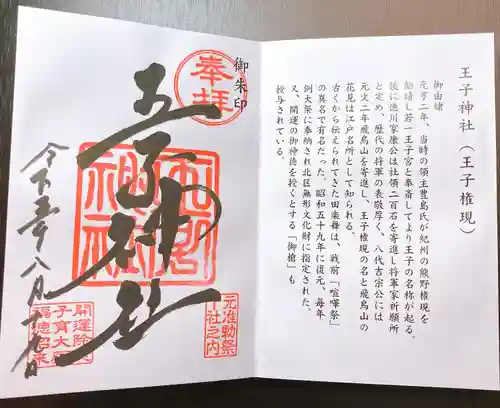 王子神社(王子権現)
御由緒
元亨二年、当時の領主豊島氏が紀州の熊野権現を
勧請し若一王子宮と奉斎してより王子の名称が起る。
後に徳川家康公は社領二百石を寄進し将軍家祈願所
と定め、歴代の将軍の崇敬厚く、八代吉宗公には
元文二年飛鳥山を寄進し、王子権現の名と飛鳥山の
花見は江戸名所として知られる。
古くから伝えられてきた田楽舞は、戦前「喧嘩祭」
の異名で有名だった。昭和五十九年に復元、毎年
例大祭に奉納され北区無形文化財に指定された。
又、開運の御神徳を授くとする「御槍」も
授与されている。
御朱印
奉拝
王子神社
元准勅祭
社之内
開運除
子育大
福徳招来